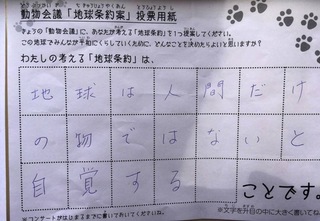 動物会議「地球条約案」投票用紙
きょうの「動物会議」に、あなたが考える「地球条約」を1つ提案してください。
この地球でみんなが平和にくらしていくために、どんなことを決めたらよいと思いますか?
わたしの考える「地球条約」は、
地球は人間だけ
の物ではないと
自覚する
ことです。
※コンサートがはじまるまでに書いておいてください。
※文字を升目の中に大きく書いてね